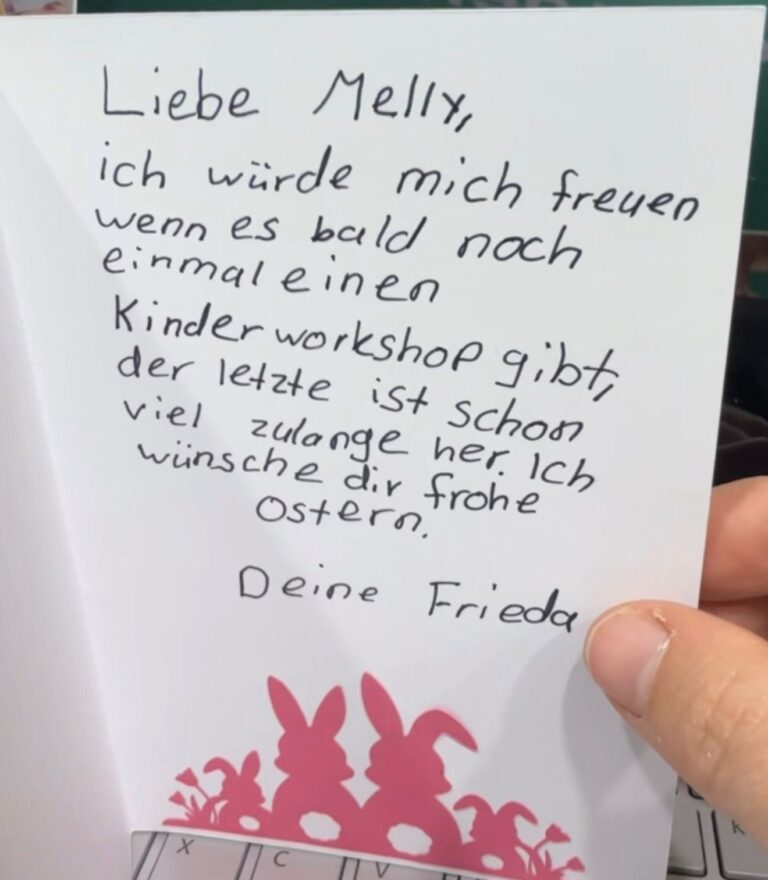 Liebe Melly,
ich würde mich freuen
wenn es bald noch
einmal einen
Kinderworkshop gibt,
der letzte ist schon
viel zulange her. Ich
wünsche dir frohe
Ostern.
Deine Frieda
X C V K